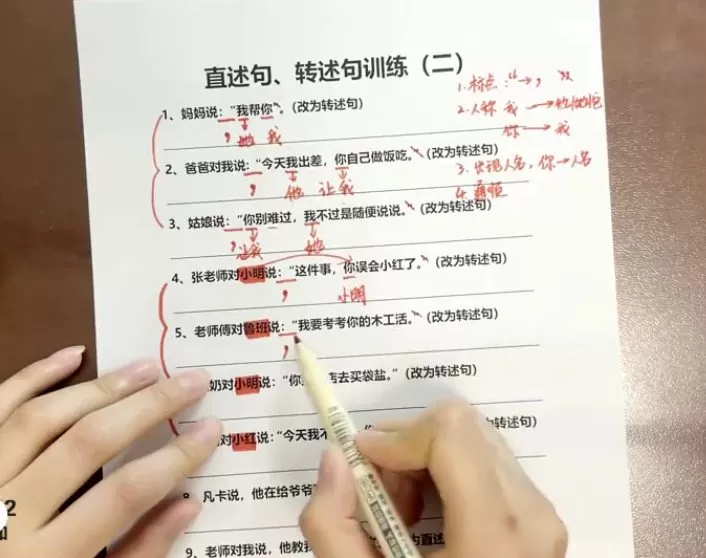 直述句、转述句训练（二）
1.标点：“→，
1、妈妈说：“我帮你”。（改为转述句）
2.人称 我→他/她
，她 我
你→我
2、爸爸对我说：“今天我出差，你自己做饭吃。”（改为转述句）
3.出现人名，你→人名
， 他 让我
4.
3、姑娘说：“你别难过，我不过是随便说说。”（改为转述句）
，让我 她
4、张老师对小明说：“这件事，你误会小红了。”（改为转述句）
， 小明
5、老师傅对鲁班说：“我要考考你的木工活。”（改为转述句）
，
奶对小明说：“你 店去买袋盐。”（改为转述句）
对小红说：“今天我不 转述句）
8、凡卡说，他在给爷爷
9、老师对我说，他教我 为直述
2